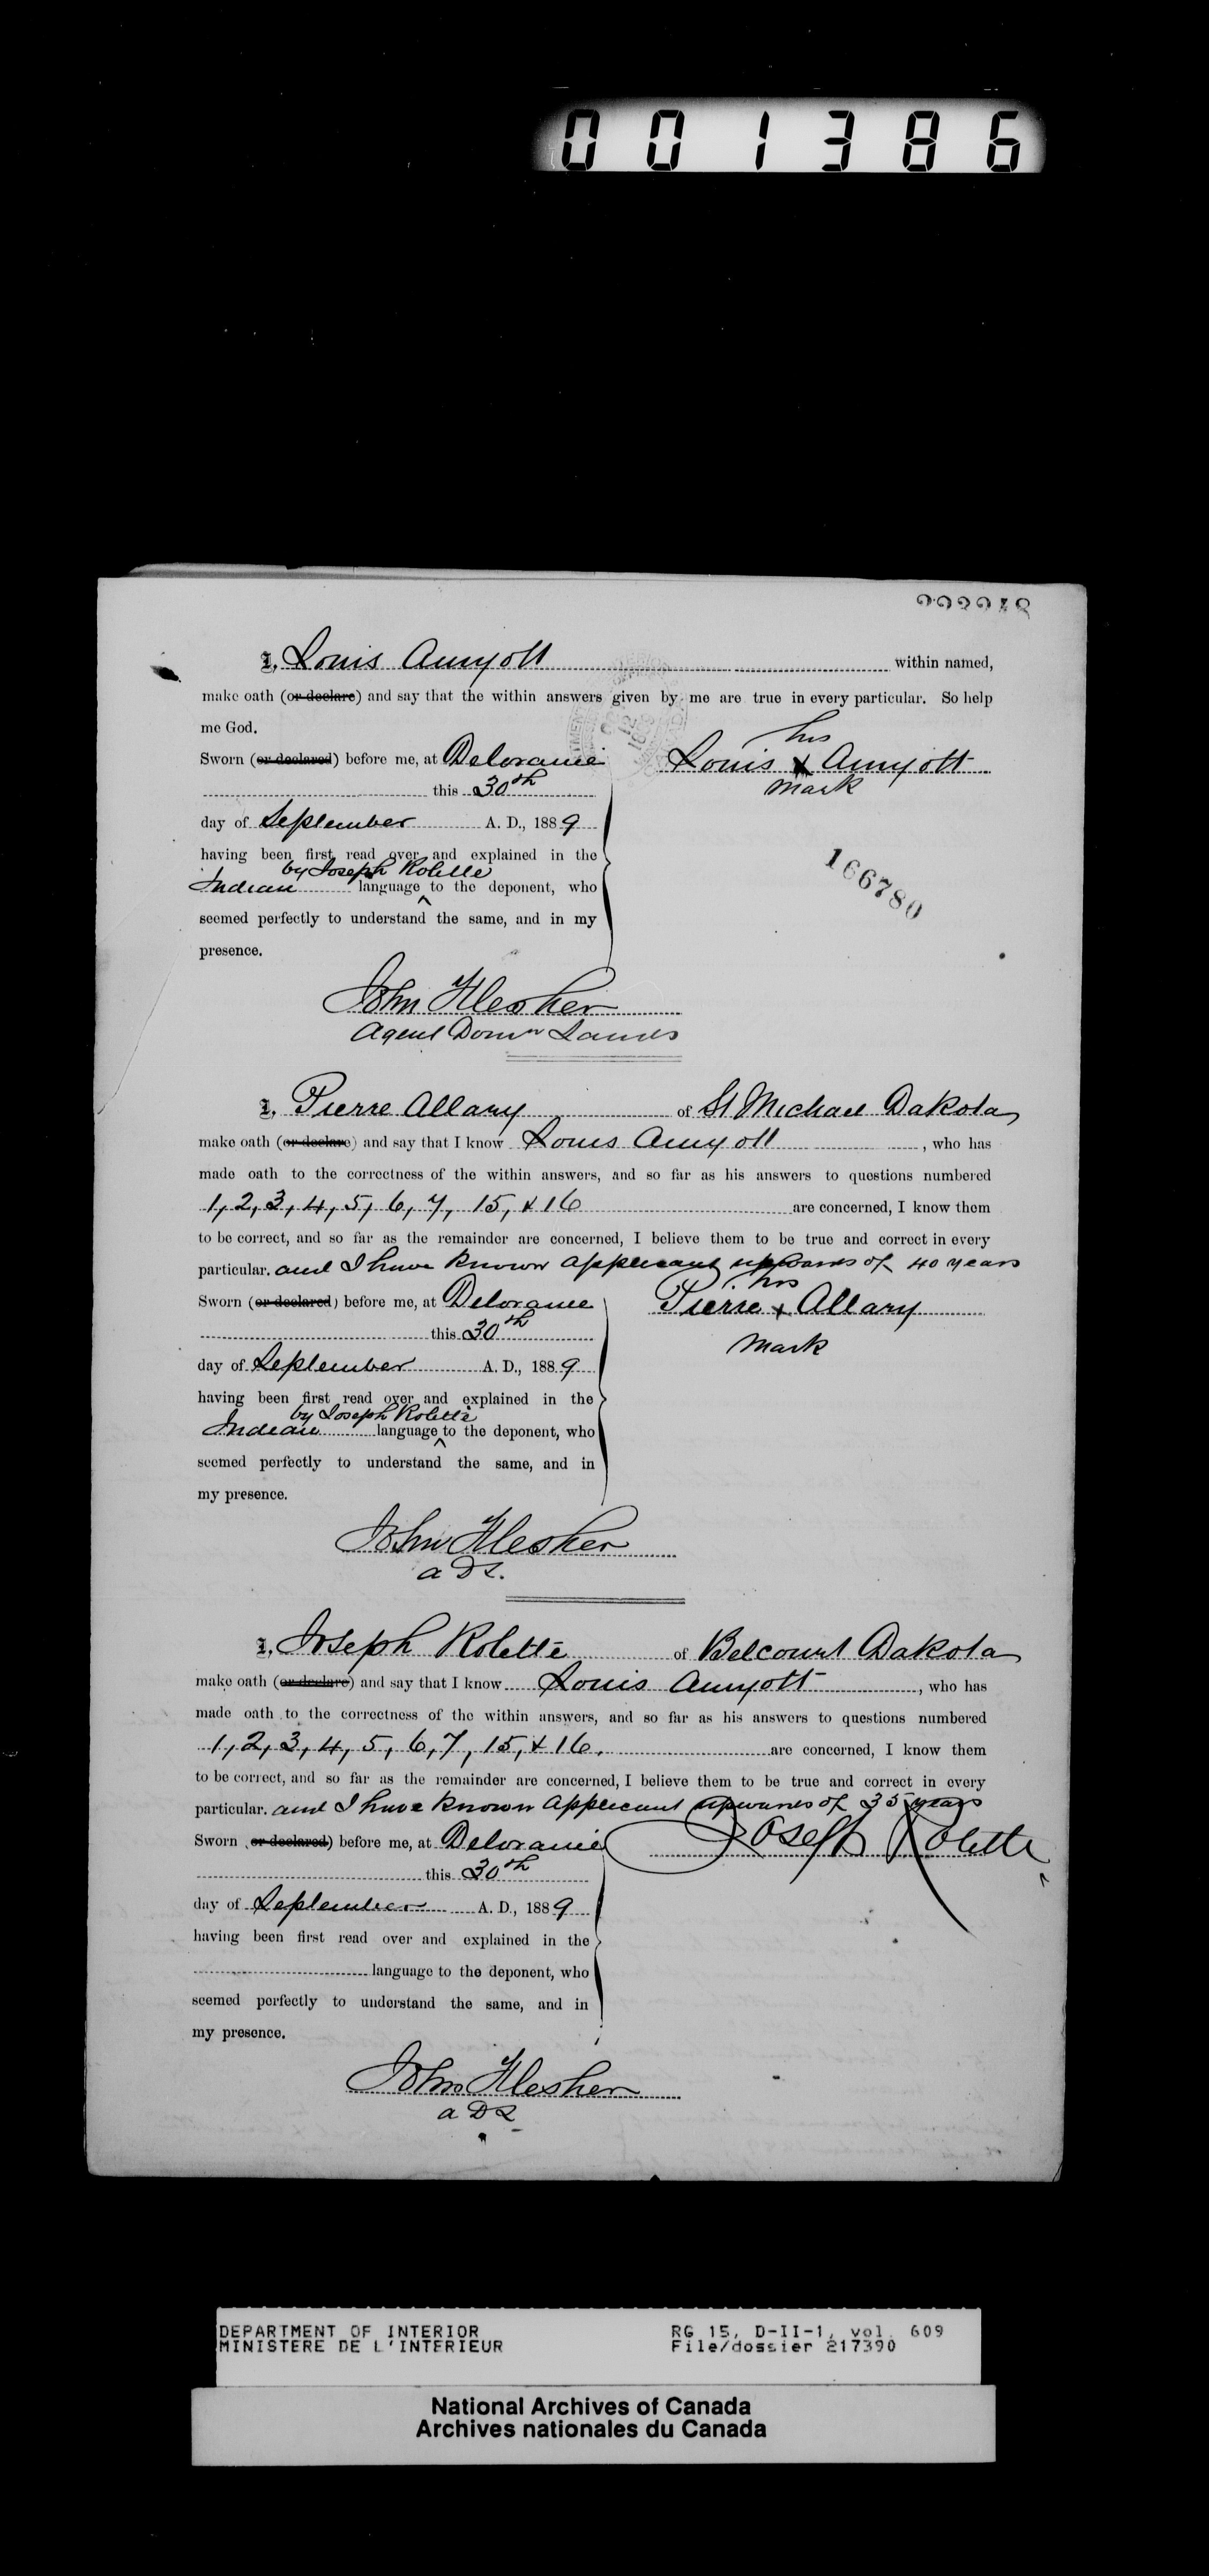 001386
I, Louis Amyott within named,
make oath (or declare) and say that the within answers given by me are true in every particular. So help
me God.
Sworn (or declared) before me, at Deloraine
this 30th
day of September A. D., 1889
having been first read over and explained in the
by Joseph Rolette
Indian language to the deponent, who
seemed perfectly to understand the same, and in my
presence.
his
Louis x Amyott
mark
166780
John Flesher
Agent Domn Lands
I, Pierre Allary of St Michael Dakota
make oath (or declare) and say that I know Louis Amyott, who has
made oath to the correctness of the within answers, and so far as his answers to questions numbered
1, 2, 3, 4, 5, 6, 7, 15, & 16 are concerned, I know them
to be correct, and so far as the remainder are concerned, I believe them to be true and correct in every
particular. and I have known applicant upwards of 40 years
Sworn (or declared) before me, at Deloraine
this 30th
day of September A. D., 1889
having been first read over and explained in the
by Joseph Rolette
Indian language to the deponent, who
seemed perfectly to understand the same, and in
my presence.
his
Pierre x Allary
mark
John Flesher
a D L.
I, Joseph Rolette of Belcourt Dakota
make oath (or declare) and say that I know Louis Amyott, who has
made oath to the correctness of the within answers, and so far as his answers to questions numbered
1, 2, 3, 4, 5, 6, 7, 15, & 16. are concerned, I know them
to be correct, and so far as the remainder are concerned, I believe them to be true and correct in every
particular. and I have known applicant upwards of 35 years
Sworn (or declared) before me, at Deloraine
this 30th
day of September A. D., 1889
having been first read over and explained in the
language to the deponent, who
seemed perfectly to understand the same, and in
my presence.
Joseph Rolette
John Flesher
a D L
DEPARTMENT OF INTERIOR
MINISTERE DE L'INTERIEUR
RG 15, D-II-1, vol. 609
File/dossier 217390
National Archives of Canada
Archives nationales du Canada